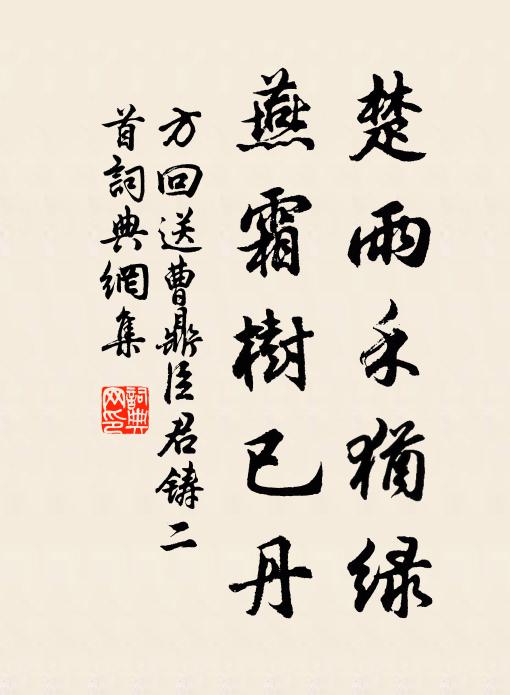 楚雨禾猶緑
燕霜樹已丹
方回送曹鼎臣君鋳二
首詞典網集
詞典网印